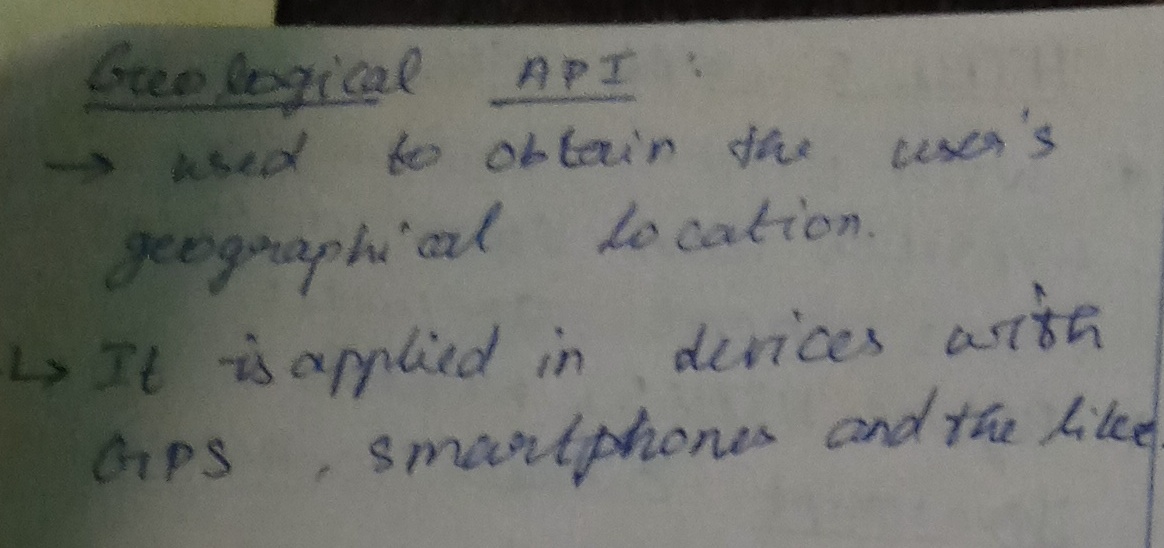 Geological API :
→ used to obtain the user's
geographical location.
↳ It is applied in devices with
GPS , smartphones and the like.